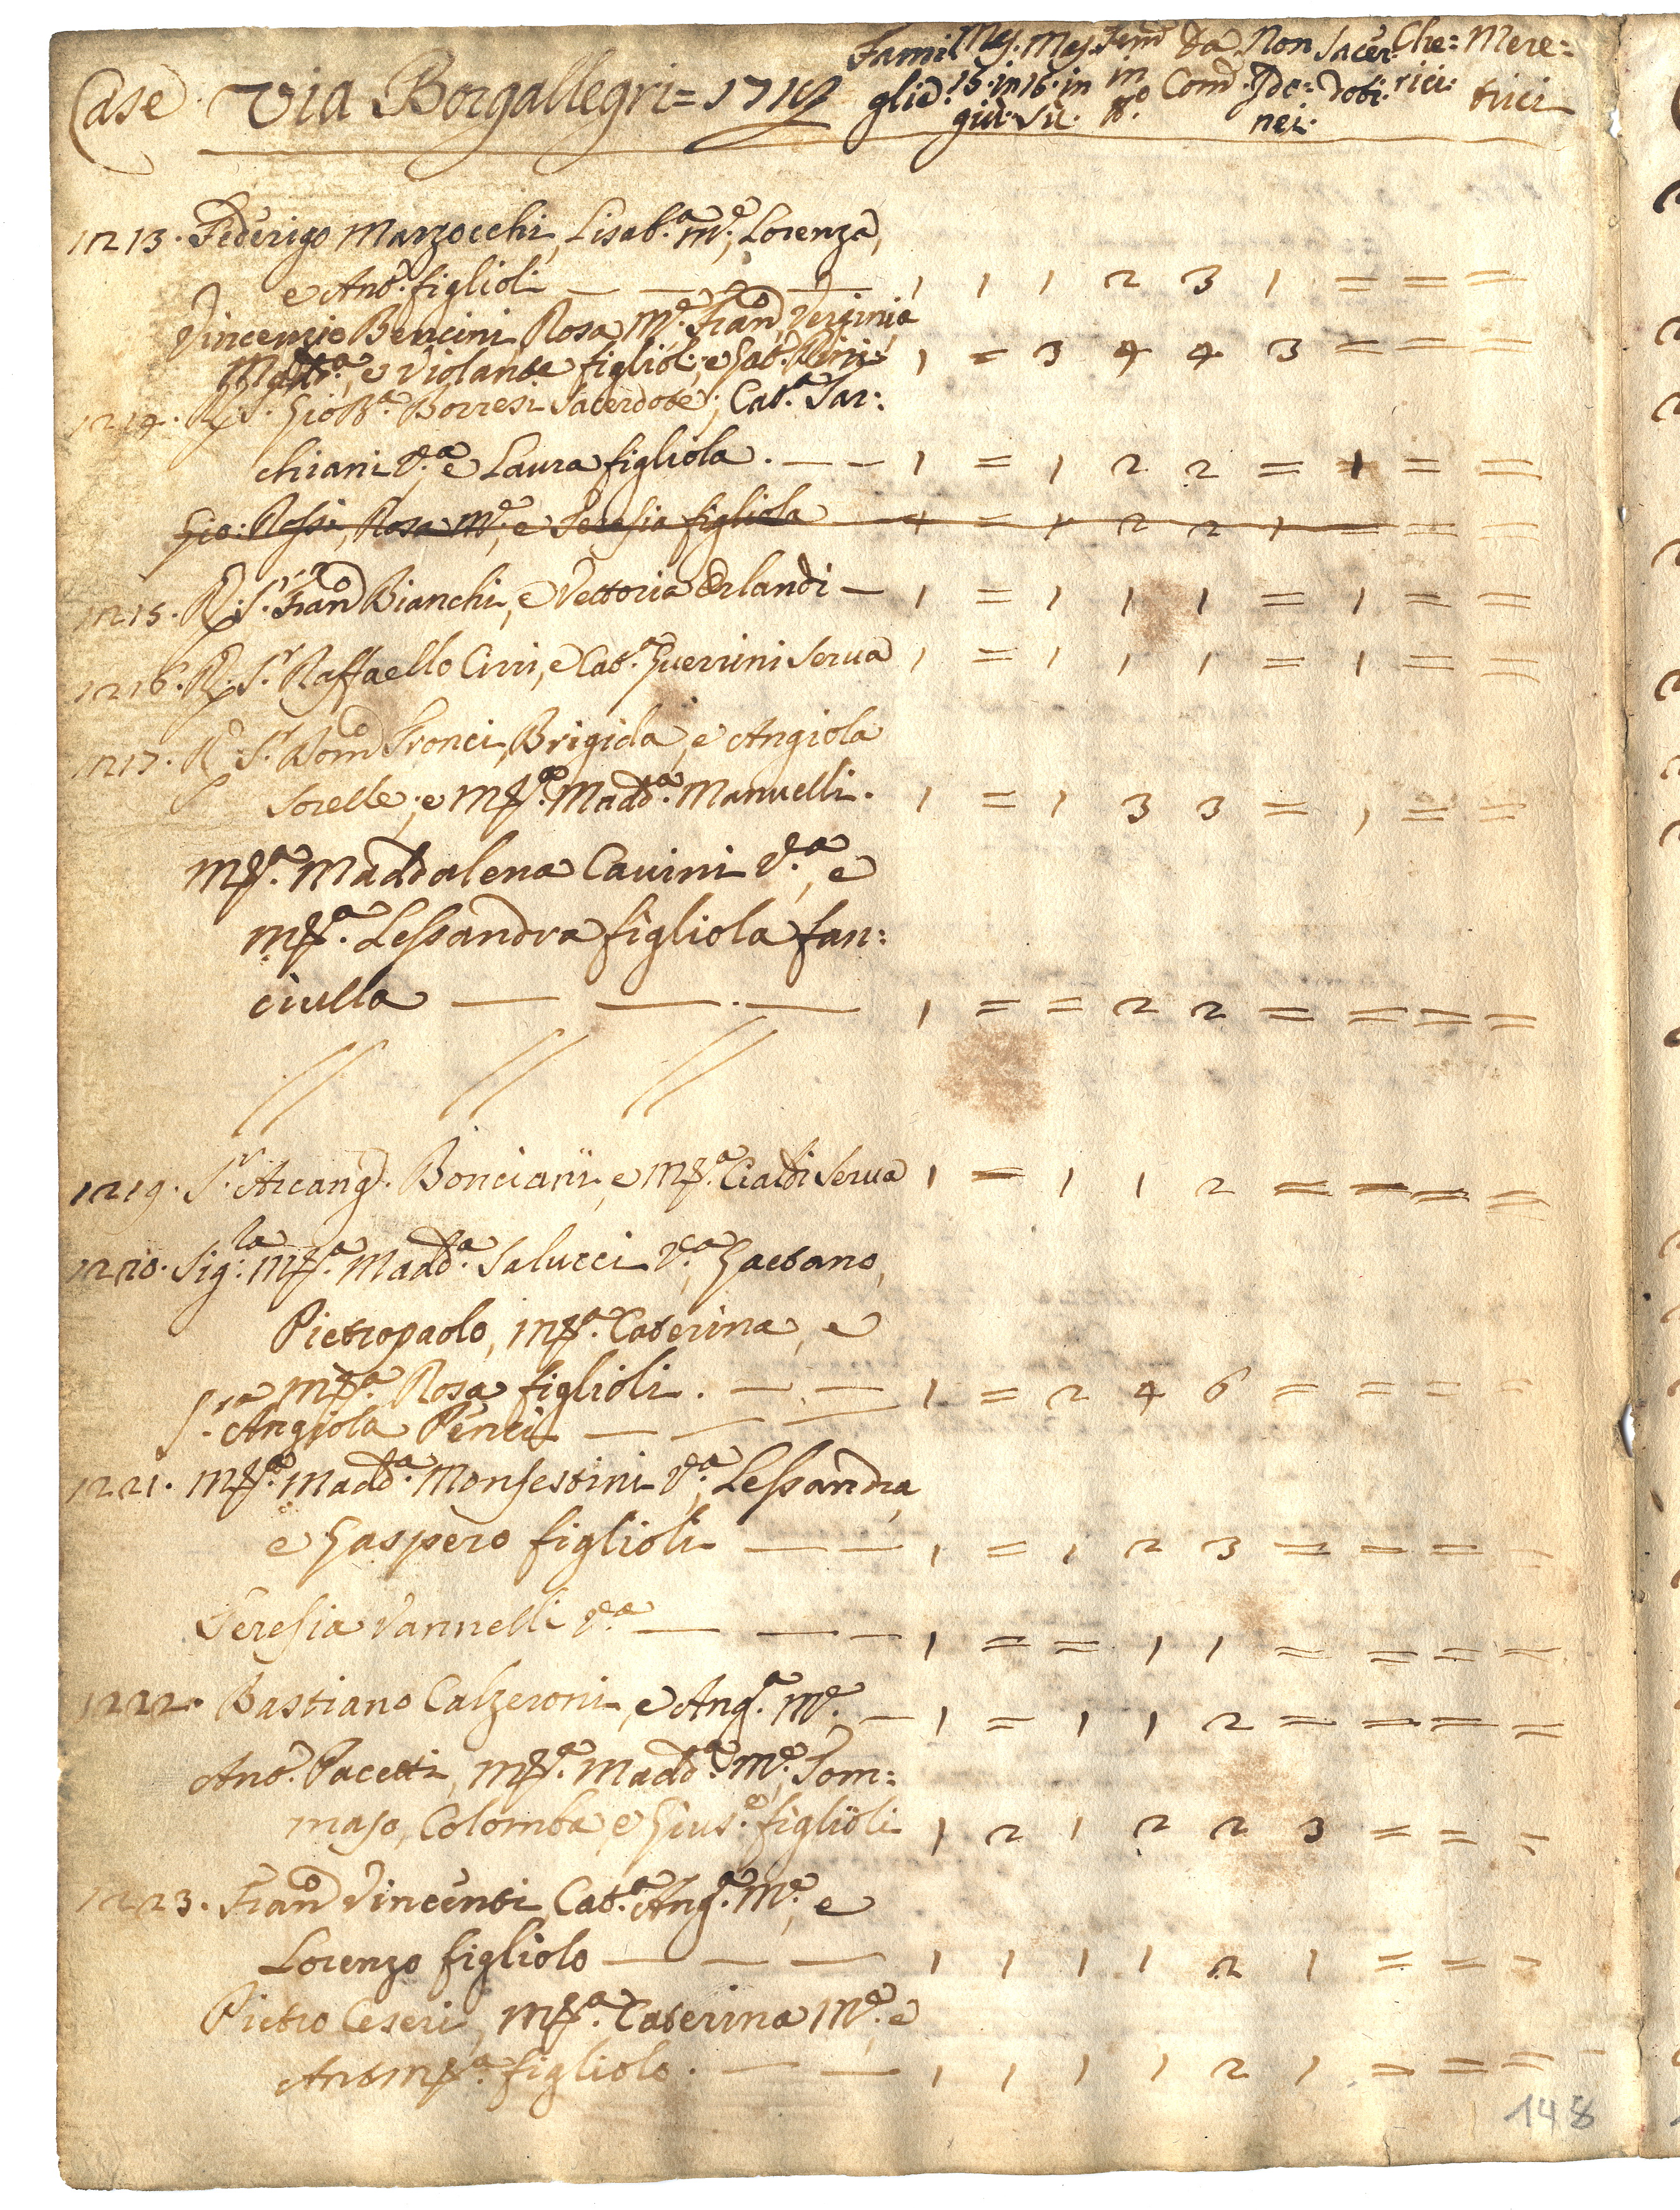 Case Via Borgallegri = 171
Fami
glie. Mas. 15. in giù. Mas. 16. in sù. Fem. in n.o Da Com. Non Ido: nei. Sacer doti. Che: rici. Mere: trici
1213. Federigo Marzocchi, Lisab.a M.e, Lorenza,
e Ant.o figlioli — — — — 1 1 1 2 3 1 = = =
Vincenzio Bencini, Rosa M.e, Fran.o, Verginia
Madd.a, e Violante figlioli; e Gab. 1 = 3 4 4 3 = = =
1214. R. S. Gio Ba.a Borresi Sacerdote; Cat.a Sar:
chiani V.a e Laura figliola. — — 1 = 1 2 2 = 1 = =
Gio: Rossi, Rosa M.e, e Teresia figliola 1 = 1 2 2 1 = = =
1215. R. S.r Fran.o Bianchi, e Vettoria Orlandi — 1 = 1 1 1 = 1 = =
1216. R. S.r Raffaello Cirri, e Cat.a Guerrini Serva 1 = 1 1 1 = 1 = =
1217. R. S.r Dom.o Fronci, Brigida, e Angiola
Sorelle; e M.a Madd.a Manuelli. 1 = 1 3 3 = 1 = =
M.a Maddalena Cavini V.a, e
M.a Lessandra figliola fan:
ciulla — — — 1 = = 2 2 = = = =
// // //
1219. S.r Arcang.o Bonciani, e M.a Cialdi Serva 1 = 1 1 2 = = = =
1220. Sig.la M.a Madd.a Salucci V.a, Gaetano,
Pietropaolo, M.a Caterina, e
M.a Rosa figlioli. — — 1 = 2 4 6 = = = =
S.ra Angiola Penci — — —
1221. M.a Madd.a Monfestini V.a, Lessandra,
e Gaspero figlioli — — 1 = 1 2 3 = = = =
Teresia Vannelli V.a — — — 1 = = 1 1 = = = =
1222. Bastiano Calzeroni, e Ang.a M.e — 1 = 1 1 2 = = = =
Ant.o Pacetti, M.a Madd.a M.e, Tom:
maso, Colomba, e Gius.e figlioli 1 2 1 2 2 3 = = =
1223. Fran.o Vincenti, Cat.a Ang.a M.e, e
Lorenzo figliolo — — — 1 1 1 1 2 1 = = =
Pietro Ceseri, M.a Caterina M.e, e
Ant. M.a figliolo. — — 1 1 1 1 2 1 = = =
148